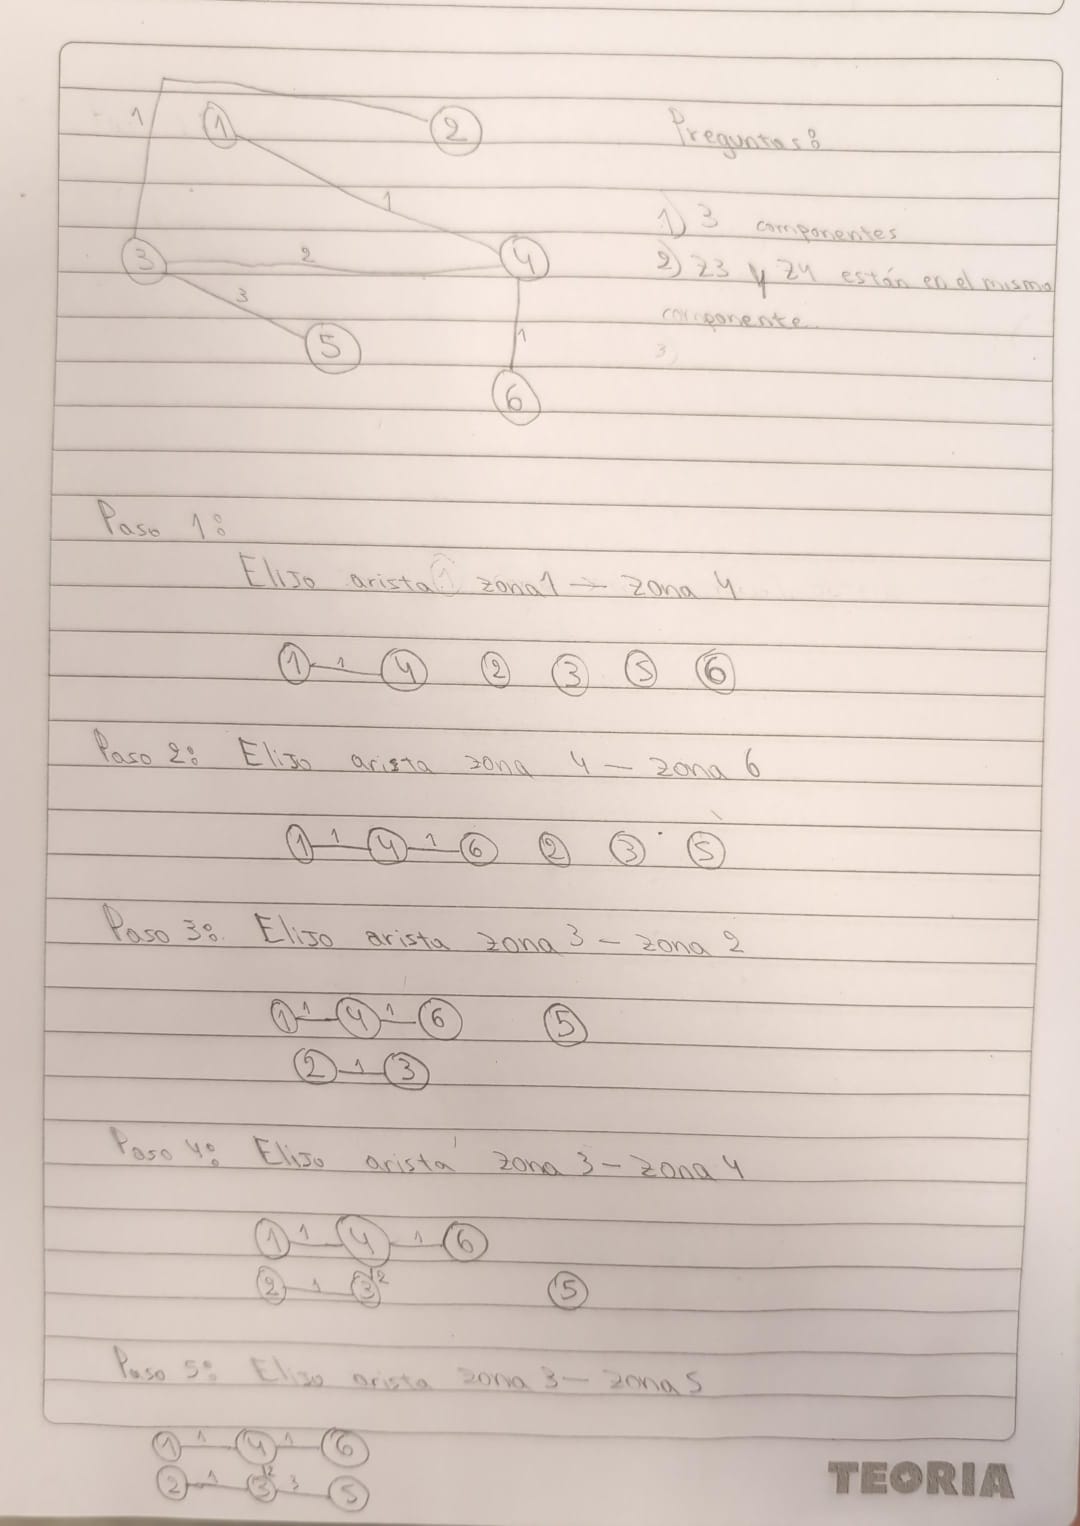 1 1 2 Preguntas:
1
1) 3 componentes
3 2 4
2) Z3 y Z4 están en el mismo
3
componente
1
3)
5
6
Paso 1:
Elijo arista zona1 → zona 4
1 1 4 2 3 5 6
Paso 2: Elijo arista zona 4 - zona 6
1 1 4 1 6 2 3 5
Paso 3: Elijo arista zona 3 - zona 2
1 1 4 1 6 5
2 1 3
Paso 4: Elijo arista zona 3 - zona 4
1 1 4 1 6
2 1 3 2 5
Paso 5: Elijo arista zona 3 - zona 5
1 1 4 1 6
2 1 3 2 3 5
TEORIA